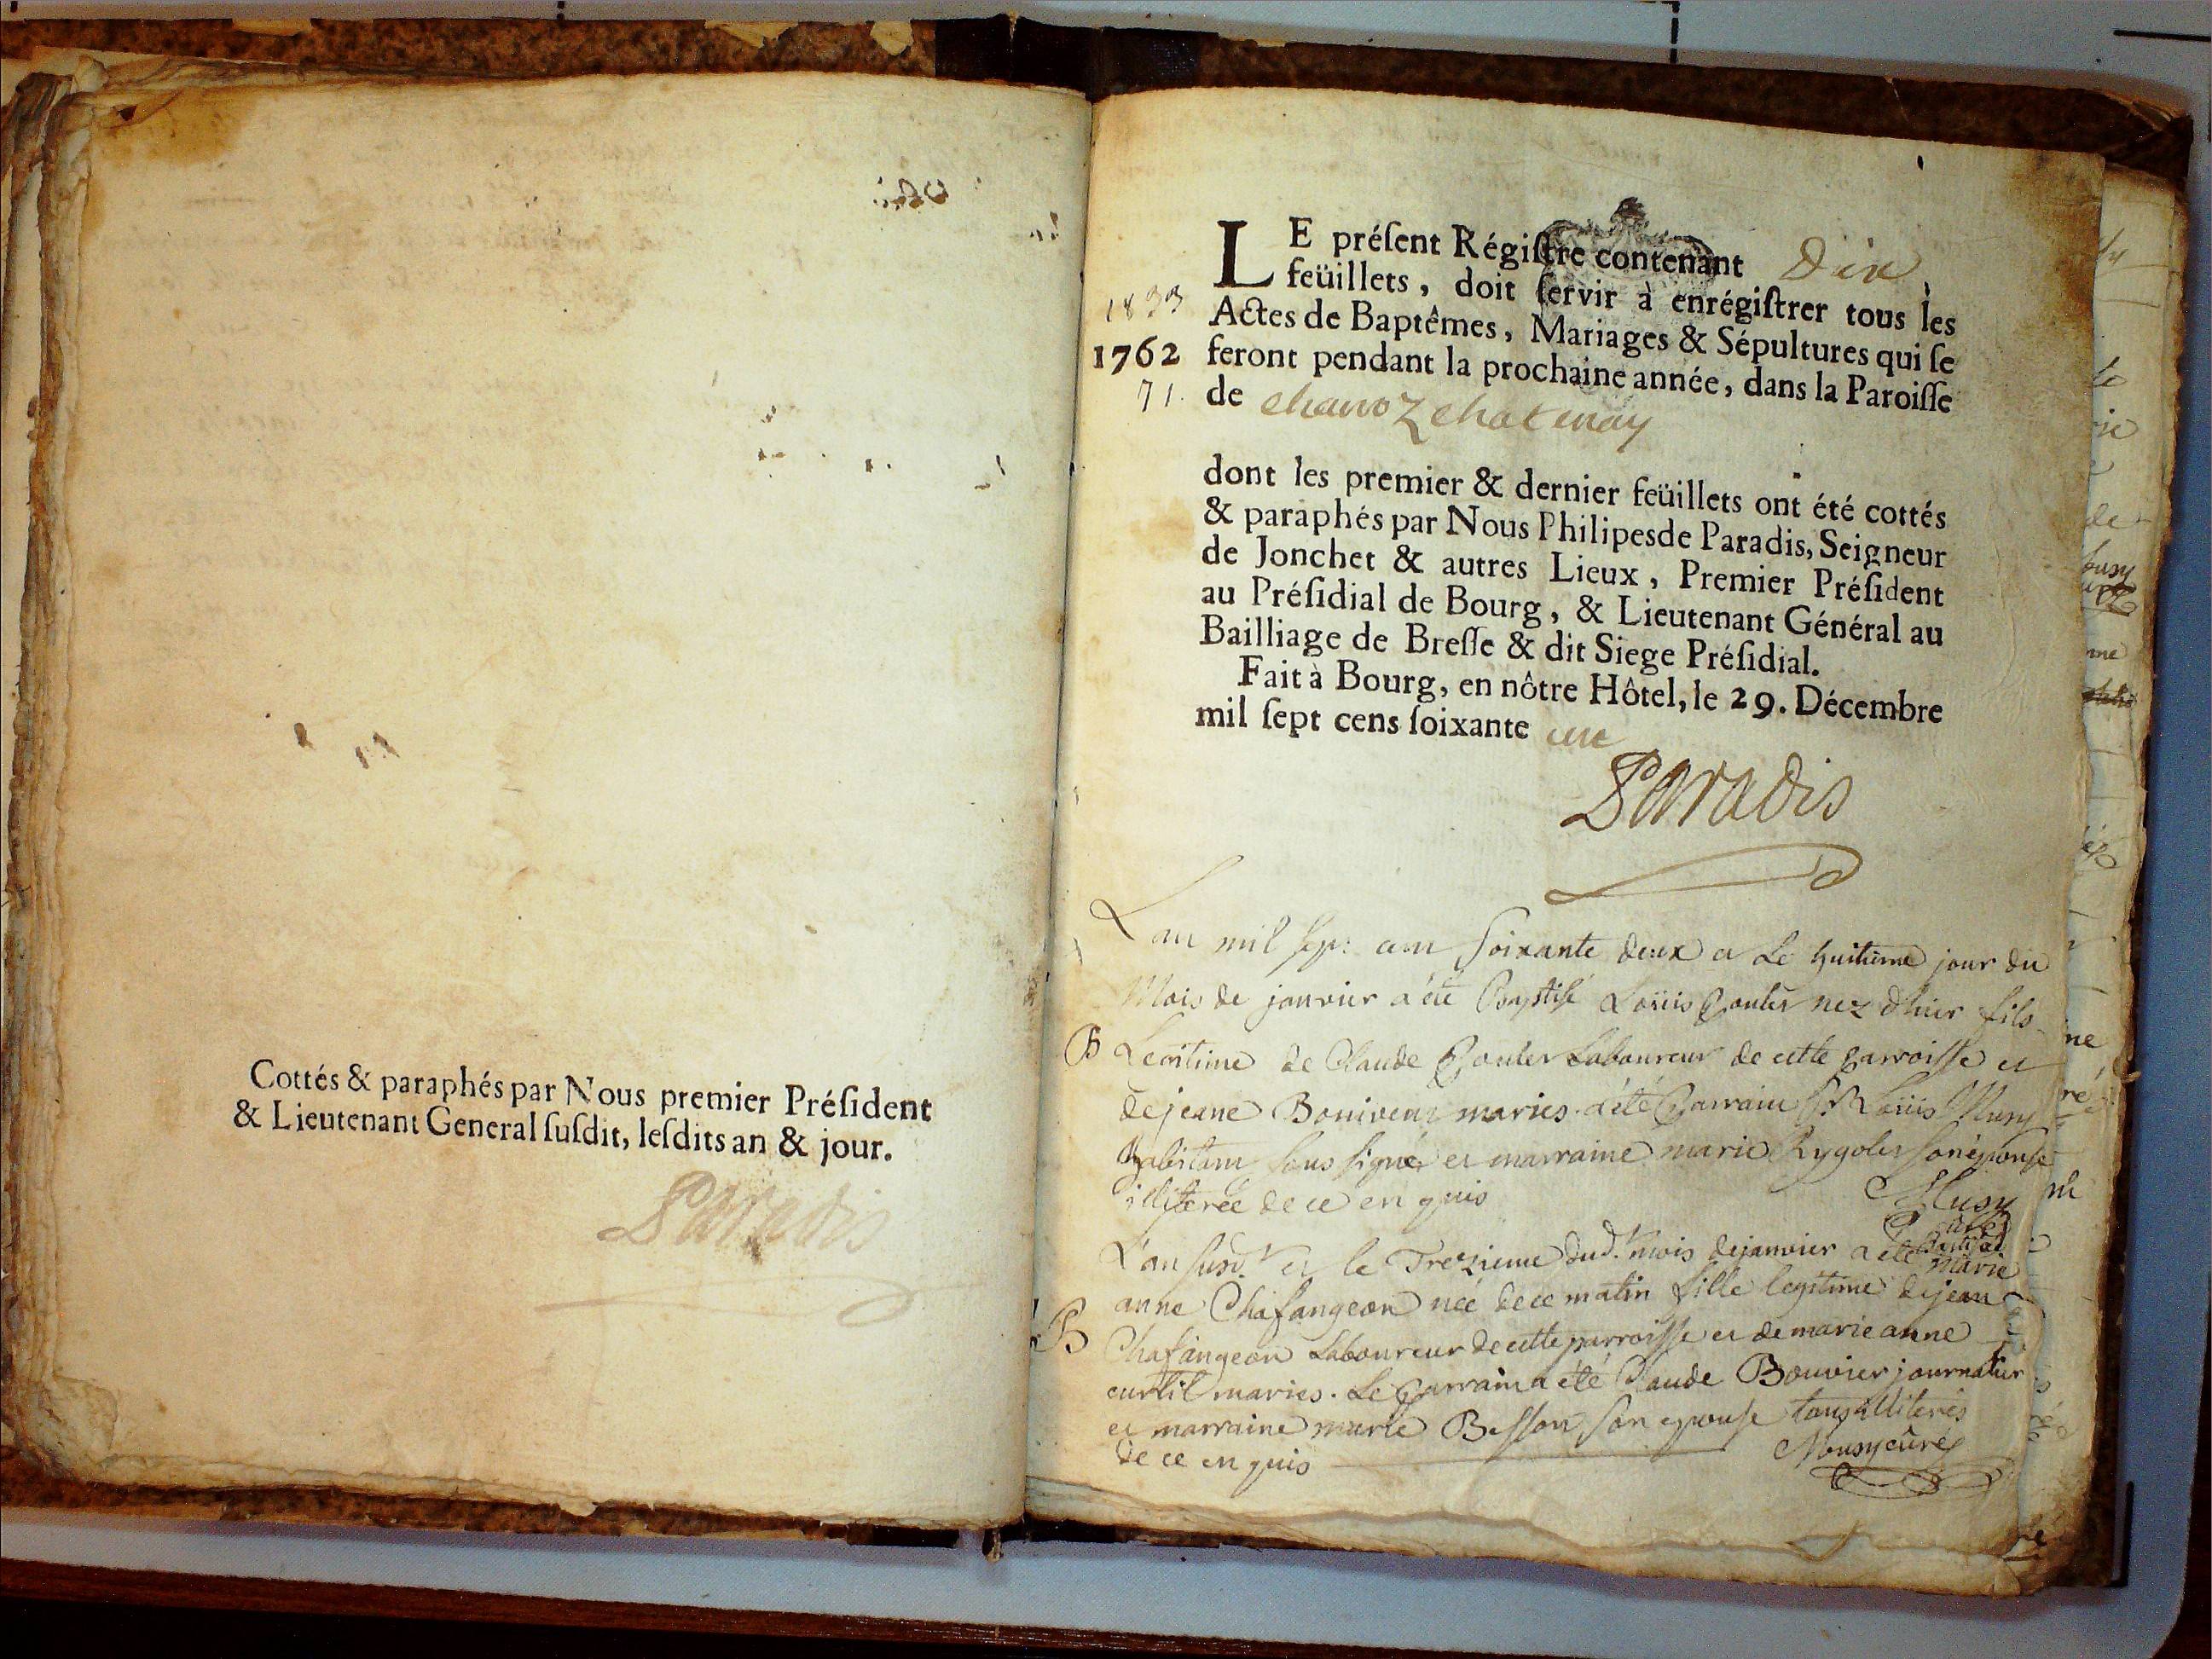 Cottés & paraphés par Nous premier Préſident
& Lieutenant General ſuſdit, leſdits an & jour.
Paradis
LE préſent Régiſtre contenant Dix
feüillets, doit ſervir à enrégiſtrer tous les
Actes de Baptêmes, Mariages & Sépultures qui ſe
1762 feront pendant la prochaine année, dans la Paroiſſe
71. de chanoz chatenay
dont les premier & dernier feüillets ont été cottés
& paraphés par Nous Philipes de Paradis, Seigneur
de Jonchet & autres Lieux, Premier Préſident
au Préſidial de Bourg, & Lieutenant Général au
Bailliage de Breſſe & dit Siege Préſidial.
Fait à Bourg, en nôtre Hôtel, le 29. Décembre
mil ſept cens ſoixante un
Paradis
L'an mil sept cent soixante deux et Le huitieme jour du
Mois de janvier a été Baptisé Loüis nez d'hier fils
B Legitime de Claude Laboureur de cette parroisse et
de jeane mariés a été Parrain Sr Loüis Musy
habitant sous signé et marraine marie son épouse
illiterée de ce enquis Musy
curé
L'an susd. et le Trezieme dud. mois de janvier a été Baptisée
marie
anne Chafangeon née de ce matin fille legitime de jean
B Chafangeon Laboureur de cette parroisse et de marie anne
curtil mariés. Le Parrain a été Claude Bouvier journalier
et marraine marie Besson son epouse tous illiterés
de ce enquis Musy curé